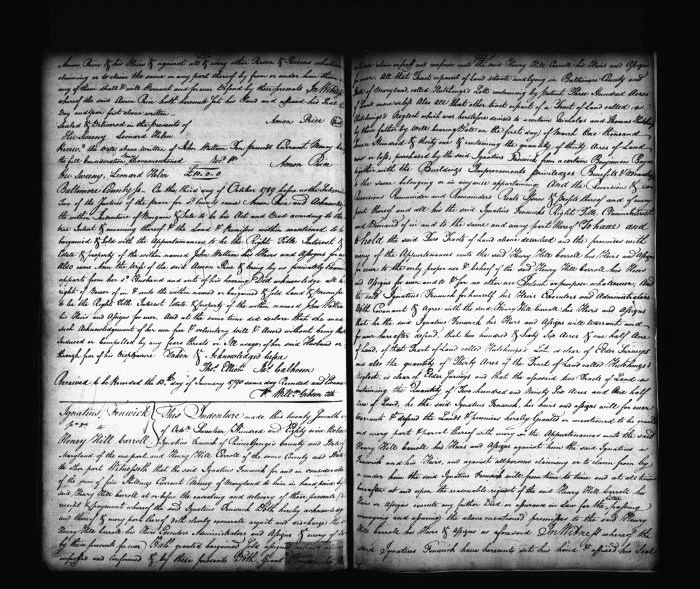 Amon Price & his Heirs & against all & every other Person & Persons whatsoever
claiming or to claim the same or any part thereof by from or under him them or
any of them shall & will Warrant and forever Defend by these presents In Witness
whereof the said Amon Price hath hereunto set his Hand and affixed his Seal the
Day and year first above written
Sealed & Delivered in the presents of Amon Price Seal
Leonard Helm
the date above written of John Wattson pounds Current Money
the full Consideration Amon Price
Leonard Helm £
Baltimore County On the third day of October 1789 before us the Subscribers
Two of the Justices of the peace for s. County came Amon Price and Acknowledged
the within Instrument of Bargain & Sale to be his Act and Deed according to the
true Intent & meaning thereof & the Land & Premises within mentioned to be
bargained & Sold with the Appurtenances to be the Right Title Interest &
Estate & property of the within named John Wattson his Heirs and Assigns for ever
Also came Ann the wife of the said Amon Price & being by us privately Examined
apart from her s. Husband and out of his hearing Did acknowledge all
right of Dower of in & unto the within named or bargained & Sold Land & premises
to be the Right Title Interest Estate & property of the within named John Wattson
his Heirs and Assigns for ever And at the same time did declare that she made
such Acknowledgement of her own free & voluntary Will & Accord without being
Induced or Compelled by any fears threats or Ill usage of her said Husband or
through fear of his Displeasure Taken & Acknowledged before
Tho. Elliott Ja. Calhoun
Received to be Recorded the 13th day of January 1790 same day Recorded and Examd
Willm Gibson Clk
Ignatius Fenwick This Indenture made this twenty
to of Octr. Seventeen Hundred and Eighty nine Between
Henry Hill Carroll Ignatius Fenwick of Prince George's County and State of
Maryland of the one part, and Henry Hill Carroll of the same County and State of
the other part Witnesseth that the said Ignatius Fenwick for and in consideration
of the sum of five Shillings Current Money of Maryland to him in hand paid by the
said Henry Hill Carroll at or before the ensealing and delivery of these presents the
receipt & payment whereof the said Ignatius Fenwick doth hereby acknowledge
and thereof & every part thereof doth clearly exonerate acquit and discharge the said
Henry Hill Carroll his Heirs Executors Administrators and Assigns & every of them
by these presents for ever Hath granted bargained Sold
and confirmed & by these presents Doth Grant
and confirm unto the said Henry Hill Carroll his Heirs and Assigns
for ever All that Tract or parcel of Land situate and lying in Baltimore County and
State of Maryland called Hutchings's Lott containing by patent Three Hundred Acres
of Land more or less Also all that other tract or parcel of a Tract of Land called
Hutchings's Neglect which was heretofore devised to a certain and Thomas Hutchings
by their father by Will bearing Date on the first day of March One thousand
Seven Hundred & thirty one & containing the quantity of thirty Acres of Land
more or less, purchased by the said Ignatius Fenwick from a certain Benjamin
together with the Buildings Improvements priviledges Benefits &
to the same belonging or in anywise appertaining And the Reversion &
Reversions Remainder and Remainders Rents Issues & Profits thereof and of every
part thereof and all his the said Ignatius Fenwick's Right Title Claim Interest
and Demand of in and to the same and every part thereof To have and
to hold the said Two Tracts of Land above described and the premises with
every of the Appurtenances unto the said Henry Hill Carroll his Heirs and Assigns
for ever to the only proper use & behoof of the said Henry Hill Carroll his Heirs
and Assigns for ever and to & for no other use Intent or purpose whatsoever, And
the said Ignatius Fenwick for himself his Heirs Executors and Administrators
doth Covenant & Agree with the said Henry Hill Carroll his Heirs and Assigns
that he the said Ignatius Fenwick his Heirs and Assigns will warrant and
for ever hereafter defend, that two Hundred & Sixty Six Acres & one half Acre
of Land, of that Tract of Land called Hutchings's Lot is clear of Elder Surveys
and also the quantity of thirty Acres of the Tract of Land called Hutchings's
Neglect, is clear of Elder Surveys and that the aforesaid two Tracts of Land as
containing the Quantity of Two hundred and Ninety Six Acres and One half
Acre of Land, he the said Ignatius Fenwick his heirs and assigns will for ever
warrant & defend the Lands & premises hereby Granted or mentioned to be granted
and every part & parcel thereof with every of the Appurtenances unto the said
Henry Hill Carroll his Heirs and Assigns against him the said Ignatius
Fenwick and his Heirs, and against all persons claiming or to claim from by
or under him the said Ignatius Fenwick will from time to time and at all times
hereafter at and upon the reasonable request of the said Henry Hill Carroll his
Heirs or Assigns execute any further Deed or assurance in Law for the passing
conveying and assuring the above mentioned premises to the said Henry
Hill Carroll his Heirs & Assigns as aforesaid. In Witness whereof the
said Ignatius Fenwick have hereunto sets his hand & affixed his Seal